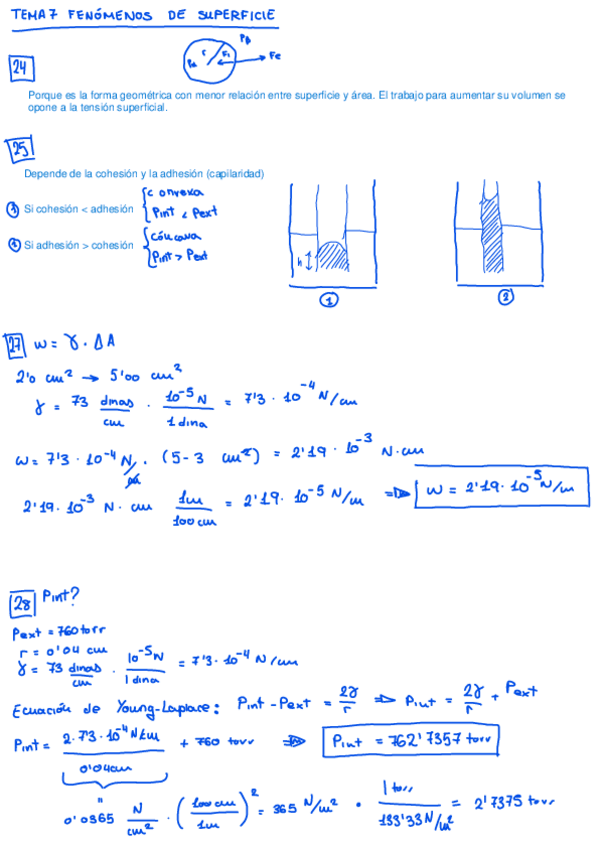 TEMA7 FENÓMENOS DE SUPERFICIE
24
PA r Fi PB Fe
Porque es la forma geométrica con menor relación entre superficie y área. El trabajo para aumentar su volumen se
opone a la tensión superficial.
25
Depende de la cohesión y la adhesión (capilaridad)
① Si cohesión < adhesión { convexa
Pint < Pext
② Si adhesión > cohesión { cóncava
Pint > Pext
h
① ②
27 W = γ · ΔA
2'0 cm² → 5'00 cm²
γ = 73 dinas/cm · 10⁻⁵ N/1 dina = 7'3 · 10⁻⁴ N/cm
W = 7'3 · 10⁻⁴ N/cm · (5-3 cm²) = 2'19 · 10⁻³ N·cm
2'19 · 10⁻³ N · cm 1m/100cm = 2'19 · 10⁻⁵ N/m ⇒ W = 2'19 · 10⁻⁵ N/m
28 Pint?
Pext = 760 torr
r = 0'04 cm
γ = 73 dinas/cm · 10⁻⁵N/1 dina = 7'3 · 10⁻⁴ N/cm
Ecuación de Young-Laplace: Pint - Pext = 2γ/r ⇒ Pint = 2γ/r + Pext
Pint = 2·7'3·10⁻⁴ N/cm / 0'04cm + 760 torr ⇒ Pint = 762'7357 torr
0'0365 N/cm² · (100 cm/1m)² = 365 N/m² · 1 torr/133'33 N/m² = 2'7375 torr